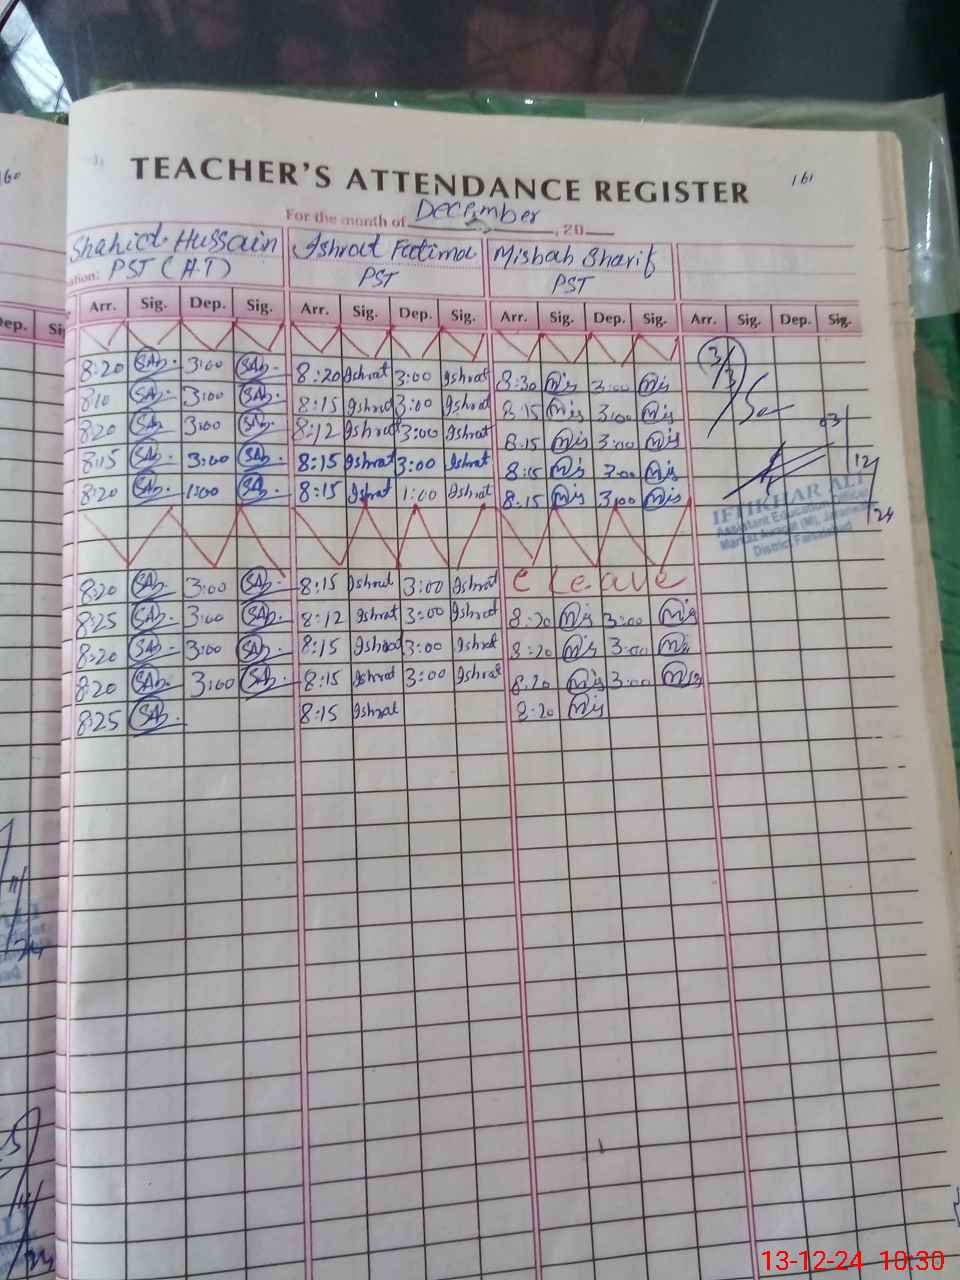 160
TEACHER'S ATTENDANCE REGISTER 161
For the month of December, 20
Shahid Hussain Ishrat Fatima Misbah Sharif
PST (H.T) PST PST
Arr. Sig. Dep. Sig. Arr. Sig. Dep. Sig. Arr. Sig. Dep. Sig. Arr. Sig. Dep. Sig.
8:20 3:00 8:20 Ishrat 3:00 Ishrat 8:30 Mis 3:00 Mis 3/3
8:10 3:00 8:15 Ishrat 3:00 Ishrat 8:15 Mis 3:00 Mis
8:20 3:00 8:12 Ishrat 3:00 Ishrat 8:15 Mis 3:00 Mis 03
8:15 3:00 8:15 Ishrat 3:00 Ishrat 8:15 Mis 3:00 Mis 12
8:20 1:00 8:15 Ishrat 1:00 Ishrat 8:15 Mis 3:00 Mis 24
IFTIKHAR ALI
Assistant Education Officer
District Faisalabad
8:20 3:00 8:15 Ishrat 3:00 Ishrat C Leave
8:25 3:00 8:12 Ishrat 3:00 Ishrat 8:20 Mis 3:00 Mis
8:20 3:00 8:15 Ishrat 3:00 Ishrat 8:20 Mis 3:00 Mis
8:20 3:00 8:15 Ishrat 3:00 Ishrat 8:20 Mis 3:00 Mis
8:25 8:15 Ishrat 8:20 Mis
13-12-24 10:30